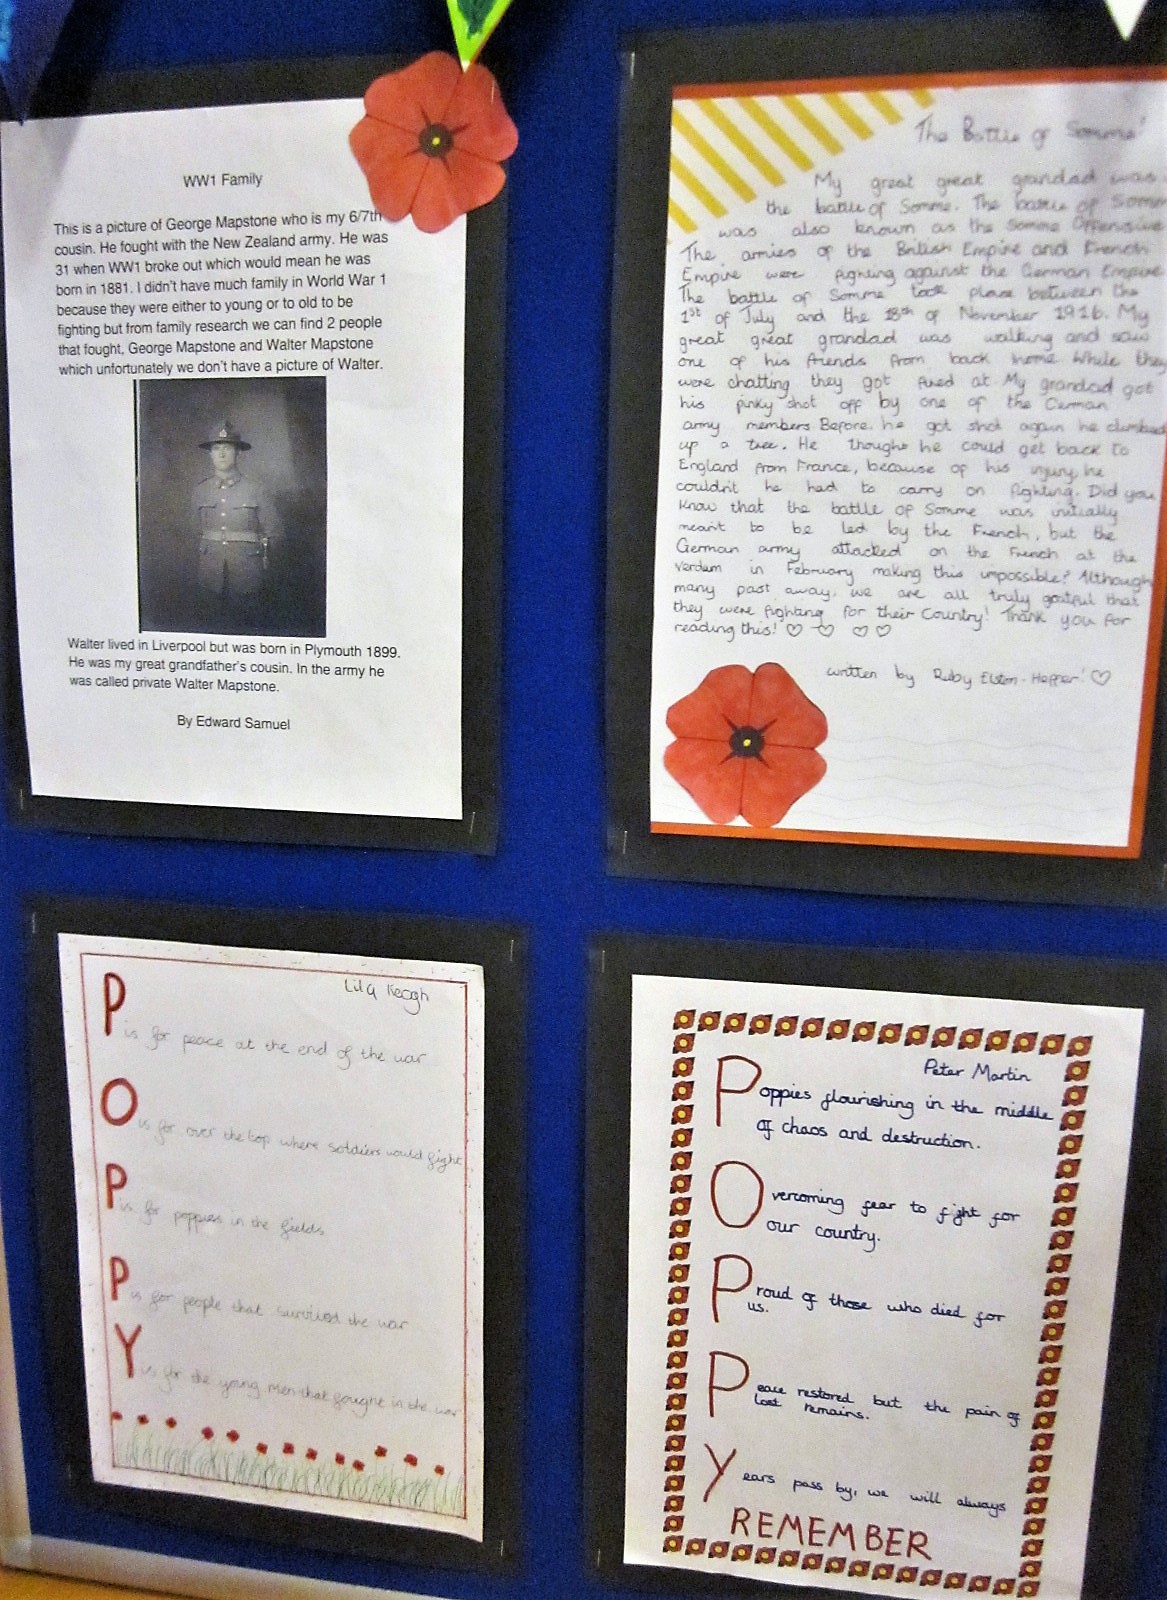 WW1 Family
This is a picture of George Mapstone who is my 6/7th
cousin. He fought with the New Zealand army. He was
31 when WW1 broke out which would mean he was
born in 1881. I didn't have much family in World War 1
because they were either to young or to old to be
fighting but from family research we can find 2 people
that fought, George Mapstone and Walter Mapstone
which unfortunately we don't have a picture of Walter.
Walter lived in Liverpool but was born in Plymouth 1899.
He was my great grandfather's cousin. In the army he
was called private Walter Mapstone.
By Edward Samuel
The Battle of Somme!
My great great grandad was
the battle of Somme. The battle of Somm
was also known as the Somme Offensive
The armies of the British Empire and French
Empire were fighting against the German Empire
The battle of Somme took place between the
1st of July and the 18th of November 1916. My
great great grandad was walking and saw
one of his friends from back home While they
were chatting they got fired at. My grandad got
his pinky shot off by one of the German
army members. Before he got shot again he climbed
up a tree. He thought he could get back to
England from France, because of his injury, he
couldn't he had to carry on fighting. Did you
know that the battle of Somme was initially
meant to be led by the French, but the
German army attacked on the French at the
Verdum in February making this impossible? Although
many past away, we are all truly gratful that
they were fighting for their Country! Thank you for
reading this! ♡ ♡ ♡ ♡
written by Ruby Elston-Hepper! ♡
Lila Keogh
P is for peace at the end of the war
O is for over the top where soldiers would fight
P is for poppies in the fields
P is for people that survived the war
Y is for the young men that fought in the war
Peter Martin
Poppies flourishing in the middle
of chaos and destruction.
Overcoming fear to fight for
our country.
Proud of those who died for
us.
Peace restored but the pain of
lost remains.
Years pass by, we will always
REMEMBER